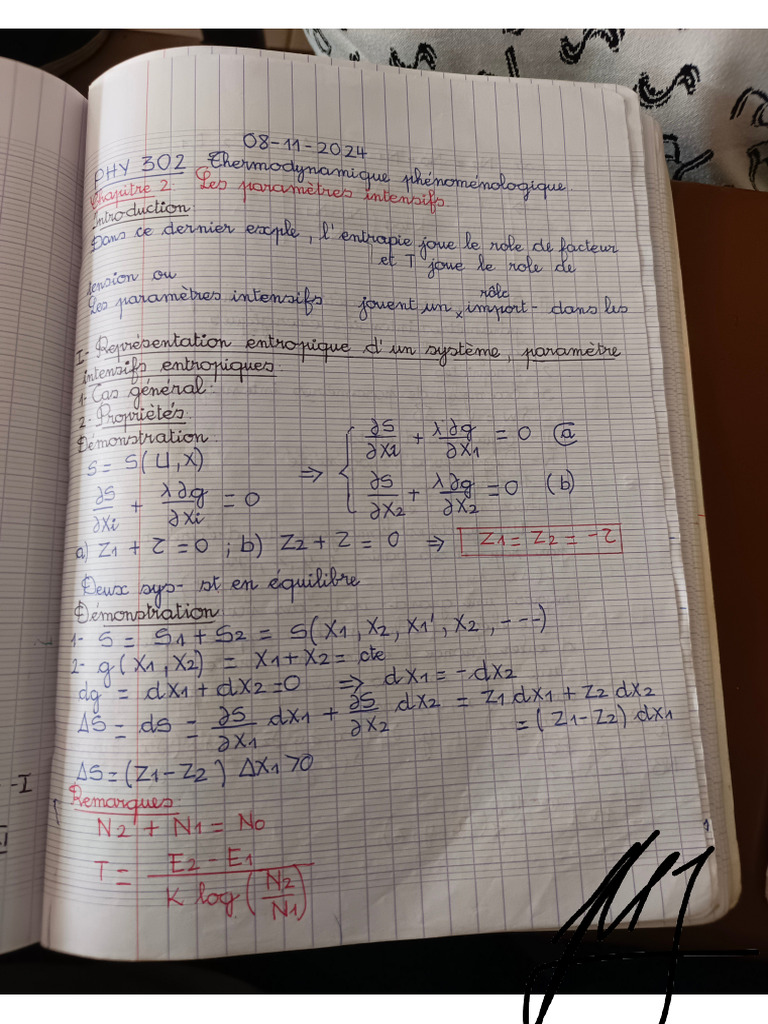 08-11-2024
PHY 302 Thermodynamique phénoménologique
Chapitre 2: Les paramètres intensifs
Introduction
Dans ce dernier exple, l'entropie joue le role de facteur
et T joue le role de
tension ou
Les paramètres intensifs jouent un rôle import- dans les
I- Représentation entropique d'un système, paramètre
intensifs entropiques
1- Cas général:
2- Propriétés
Démonstration
S = S(U,X)
∂S/∂Xi + λ∂g/∂Xi = 0 ⇒ { ∂S/∂X1 + λ∂g/∂X1 = 0 (a)
∂S/∂X2 + λ∂g/∂X2 = 0 (b)
a) Z1 + Z = 0 ; b) Z2 + Z = 0 ⇒ Z1 = Z2 = -Z
Deux sys- st en équilibre
Démonstration
1- S = S1 + S2 = S(X1, X2, X1', X2, ---)
2- g(X1, X2) = X1 + X2 = cte
dg = dX1 + dX2 = 0 ⇒ dX1 = -dX2
ΔS = dS = ∂S/∂X1 dX1 + ∂S/∂X2 dX2 = Z1 dX1 + Z2 dX2
= (Z1-Z2) dX1
ΔS = (Z1-Z2) ΔX1 >0
Remarques
N2 + N1 = N0
T = E2 - E1 / K log (N2/N1)
- -I